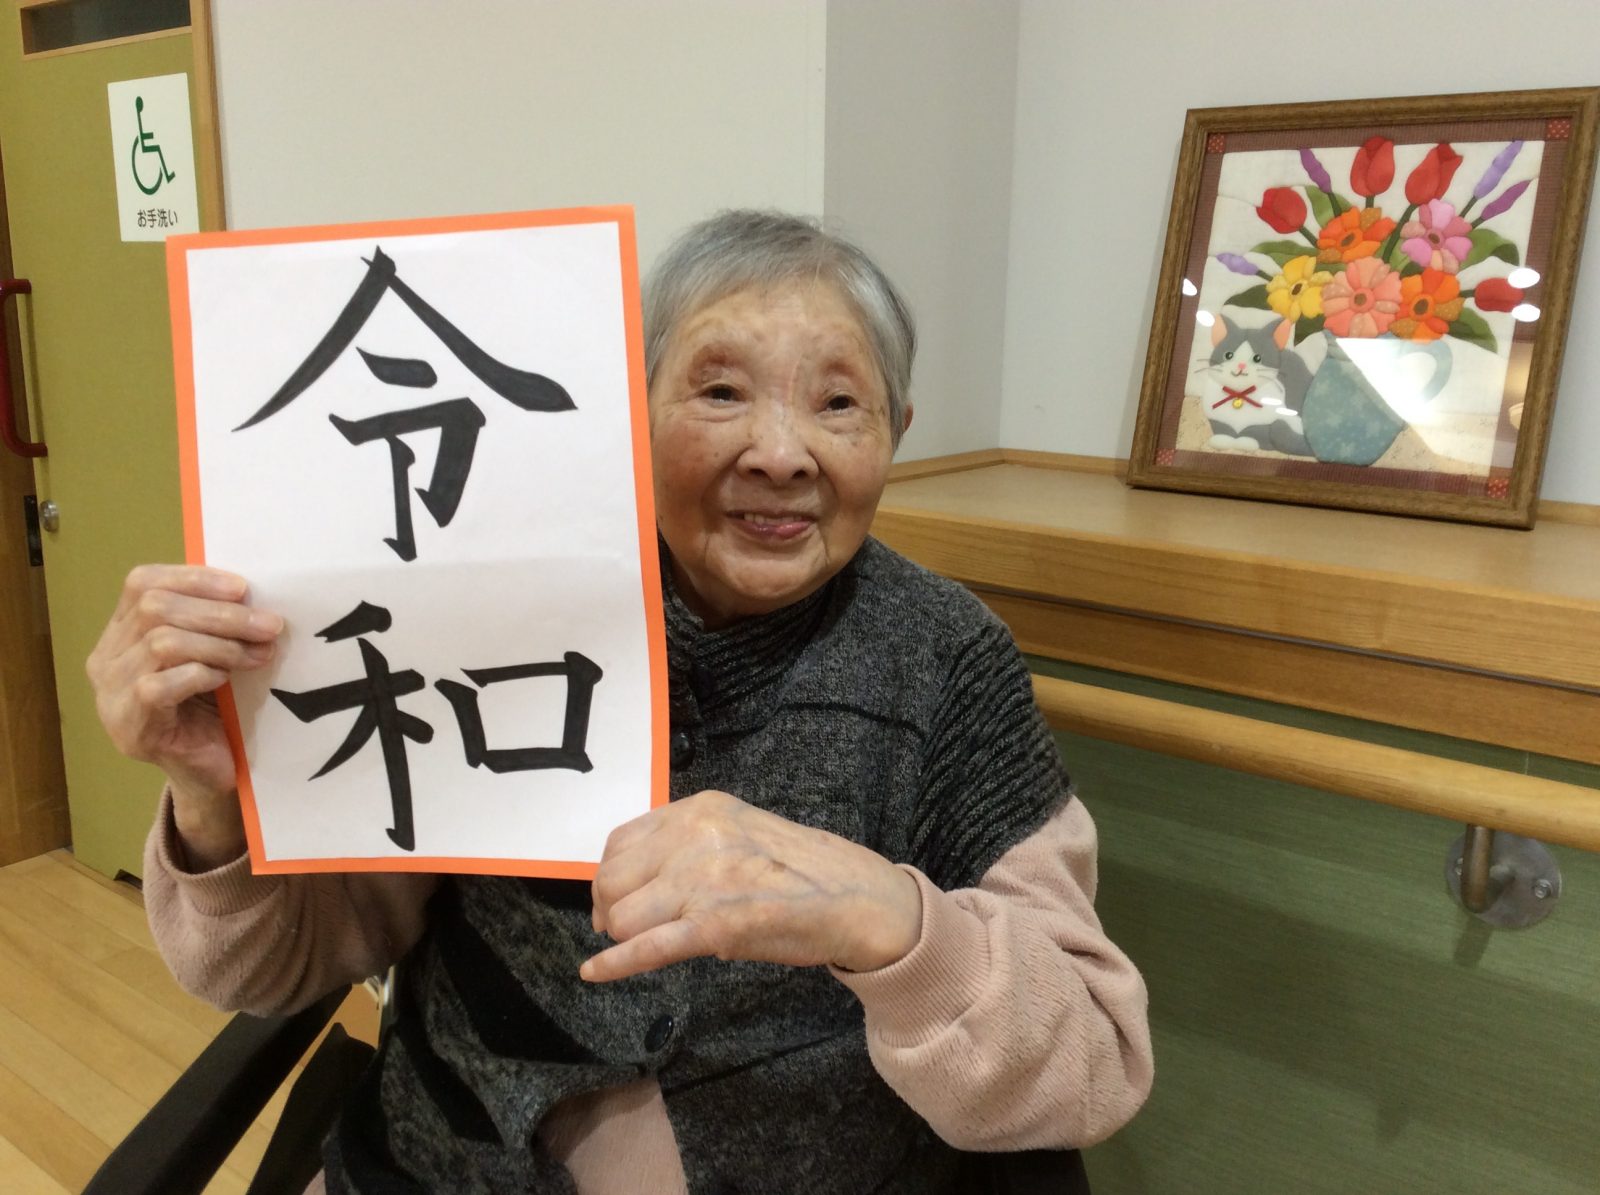 お手洗い
令
和